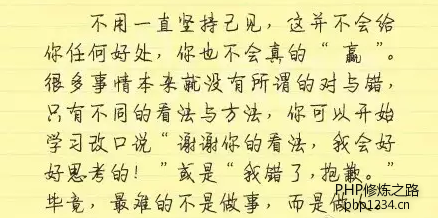 不用一直坚持己见，这并不会给
你任何好处，你也不会真的“赢”。
很多事情本来就没有所谓的对与错，
只有不同的看法与方法，你可以开始
学习改口说“谢谢你的看法，我会好
好思考的！”或是“我错了，抱歉。”
毕竟，最难的不是做事，而是做
PHP修炼之路
php1234.cn